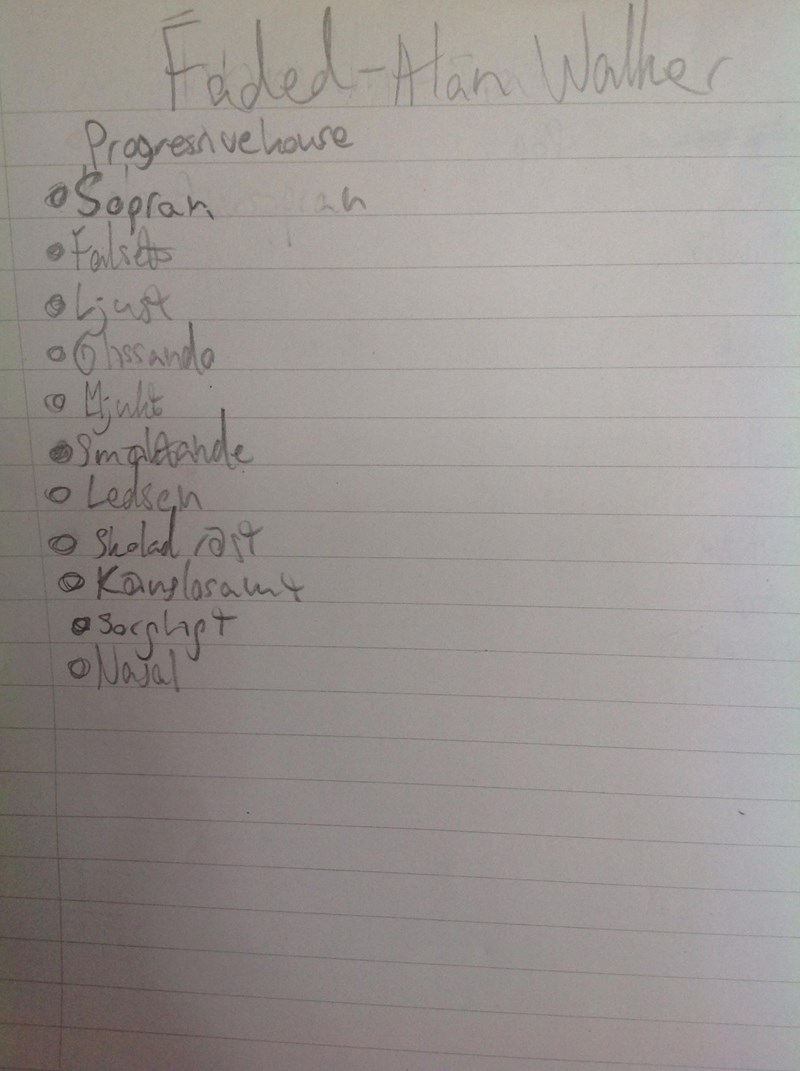 Faded - Alan Walker
Progressive house
Sopran
Falsett
Ljust
Glissando
Mjukt
Smäktande
Ledsen
Skolad röst
Känslosamt
Sorgligt
Nasal